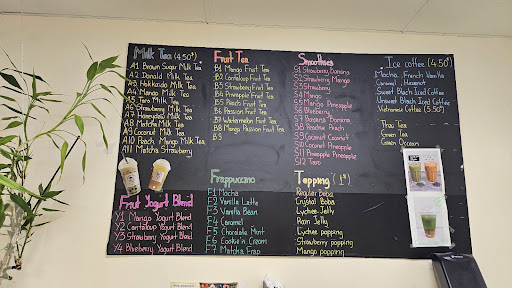 Milk Tea (4.50)
A1 Brown Sugar Milk Tea
A2 Donald Milk Tea
A3 Hokkaido Milk Tea
A4 Mango Milk Tea
A5 Taro Milk Tea
A6 Strawberry Milk Tea
A7 Honeydew Milk Tea
A8 Matcha Milk Tea
A9 Coconut Milk Tea
A10 Peach Mango Milk Tea
A11 Matcha Strawberry
Fruit Yogurt Blend
Y1 Mango Yogurt Blend
Y2 Cantaloup Yogurt Blend
Y3 Strawberry Yogurt Blend
Y4 Blueberry Yogurt Blend
Fruit Tea
B1 Mango Fruit Tea
B2 Cantaloup Fruit Tea
B3 Strawberry Fruit Tea
B4 Pineapple Fruit Tea
B5 Peach Fruit Tea
B6 Passion Fruit Tea
B7 Watermelon Fruit Tea
B8 Mango Passion Fruit Tea
Frappuccino
F1 Mocha
F2 Vanilla Latte
F3 Vanilla Bean
F4 Caramel
F5 Chocolate Mint
F6 Cookie n Cream
F7 Matcha Frap
Smoothies
S1 Strawberry Banana
S2 Strawberry Mango
S3 Strawberry
S4 Mango
S5 Mango Pineapple
S6 Blueberry
S7 Banana
S8 Peach
S9 Coconut
S10 Pineapple Coconut
S11 Pineapple
S12 Taro
Topping (1)
Regular Boba
Crystal Boba
Lychee Jelly
Rain Jelly
Lychee popping
Strawberry popping
Mango popping
Ice coffee (4.50)
Mocha, French Vanilla
Caramel, Hazelnut
Sweet Black Iced Coffee
Unsweet Black Iced Coffee
Vietnamese Coffee (5.50)
Thai Tea
Green Tea